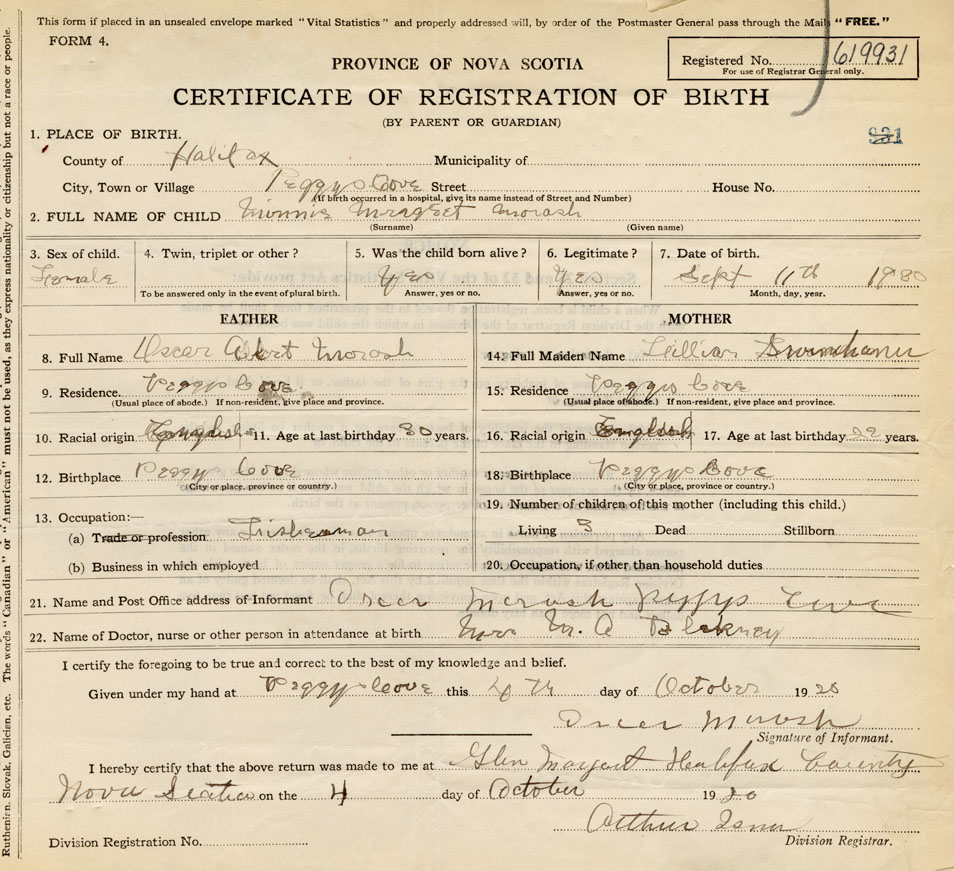 This form if placed in an unsealed envelope marked "Vital Statistics" and properly addressed will, by order of the Postmaster General pass through the Mails "FREE."
FORM 4.
Registered No. 619931
For use of Registrar General only.
PROVINCE OF NOVA SCOTIA
CERTIFICATE OF REGISTRATION OF BIRTH
(BY PARENT OR GUARDIAN)
931
1. PLACE OF BIRTH.
County of Halifax Municipality of
City, Town or Village Peggys Cove Street House No.
(If birth occurred in a hospital, give its name instead of Street and Number)
2. FULL NAME OF CHILD Minnie Mragret Morash
(Surname) (Given name)
3. Sex of child. 4. Twin, triplet or other? 5. Was the child born alive? 6. Legitimate? 7. Date of birth.
Female Yes Yes Sept 11th
To be answered only in the event of plural birth. Answer, yes or no. Answer, yes or no. Month, day, year.
FATHER MOTHER
8. Full Name Oscar Morash 14. Full Maiden Name Lillian
9. Residence. Peggys Cove 15. Residence Peggys Cove
(Usual place of abode.) If non-resident, give place and province. (Usual place of abode.) If non-resident, give place and province.
10. Racial origin English 11. Age at last birthday 30 years. 16. Racial origin English 17. Age at last birthday 22 years.
12. Birthplace Peggy Cove 18. Birthplace Peggys Cove
(City or place, province or country.) (City or place, province or country.)
13. Occupation:— 19. Number of children of this mother (including this child.)
(a) Trade or profession Fisherman Living 3 Dead Stillborn
(b) Business in which employed 20. Occupation, if other than household duties
21. Name and Post Office address of Informant Oscar Morash Peggys Cove
22. Name of Doctor, nurse or other person in attendance at birth Mrs M. A
I certify the foregoing to be true and correct to the best of my knowledge and belief.
Given under my hand at Peggys Cove this 4th day of October 19
Oscar Morash
Signature of Informant.
I hereby certify that the above return was made to me at Glen Margaret Halifax County
Nova Scotia on the 4 day of October 19
Arthur
Division Registrar.
Division Registration No.
Ruthenian, Slovak, Galician, etc. The words "Canadian" or "American" must not be used, as they express nationality or citizenship but not a race or people.